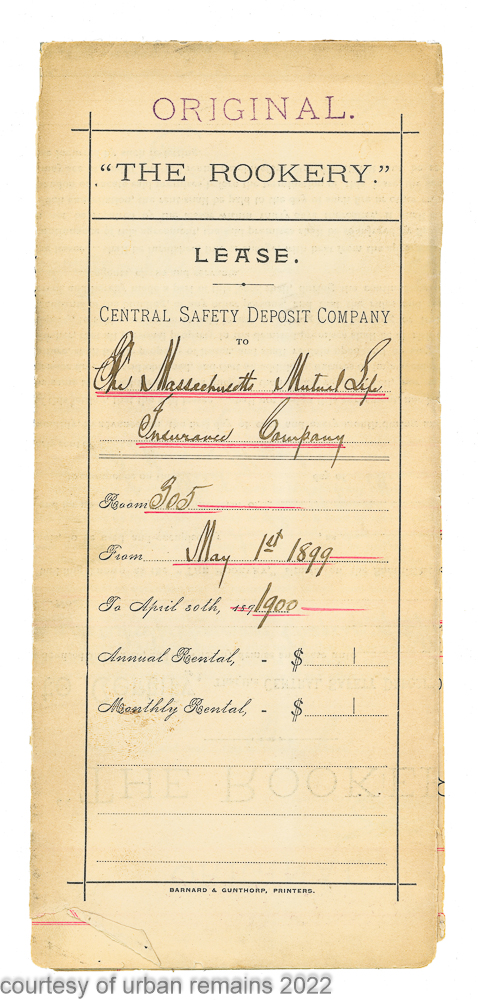 ORIGINAL.
"THE ROOKERY."
LEASE.
CENTRAL SAFETY DEPOSIT COMPANY
TO
The Massachusetts Mutual Life
Insurance Company
Room 305
From May 1st 1899
To April 30th, 189 1900
Annual Rental, - $ |
Monthly Rental, - $ |
THE ROOKERY
BARNARD & GUNTHORP, PRINTERS.
courtesy of urban remains 2022